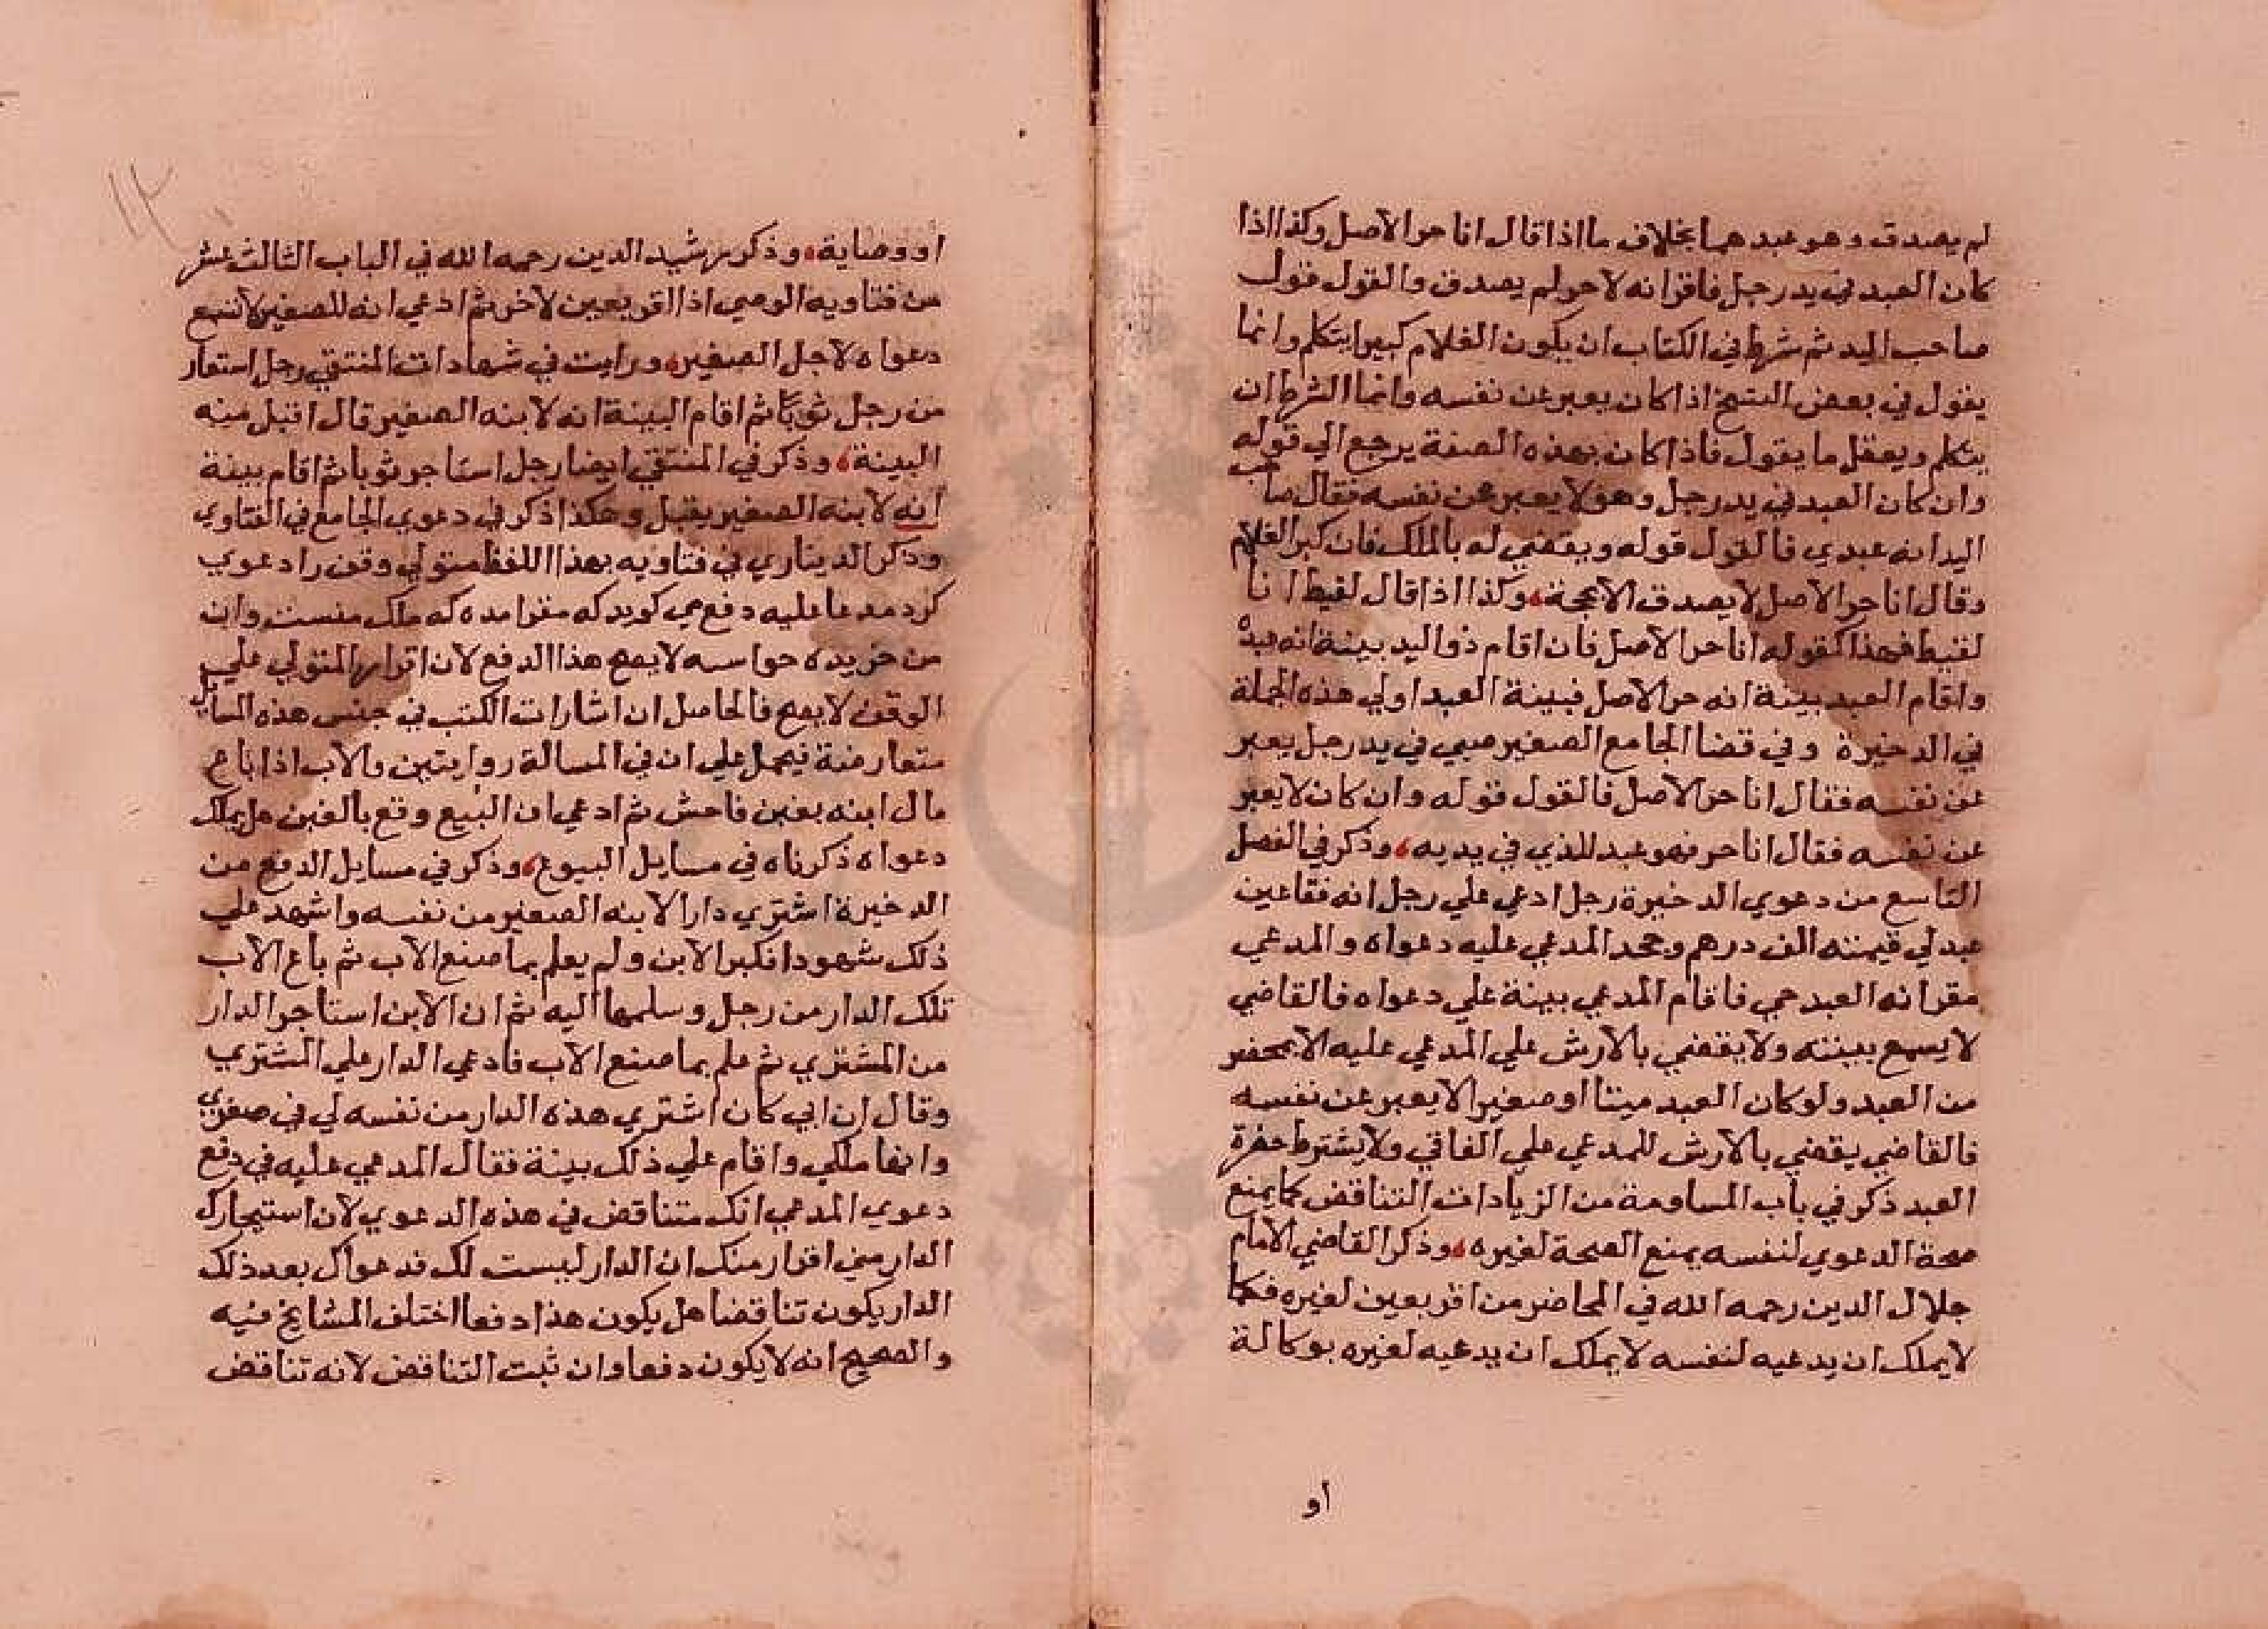 لم يصدق وهو عبد هما بخلاف ما اذا قال انا حر الاصل وكذا اذا
كان العبد في يد رجل فاقر انه لاحر لم يصدق والقول قول
صاحب اليد ثم شرط في الكتاب ان يكون الغلام كبيرا يتكلم وانما
يقول في بعض النسخ اذا كان يعبر عن نفسه وانما الشرط ان
يتكلم ويعقل ما يقول فاذا كان بهذه الصفة يرجع الي قوله
وان كان العبد في يد رجل وهو لا يعبر عن نفسه فقال صاحب
اليد انه عبدي فالقول قوله ويقضي له بالملك فان كبر الغلام
وقال انا حر الاصل لا يصدق الا بحجة، وكذا اذا قال لقيط انا
لقيط فهذا كقوله انا حر الاصل فان اقام ذو اليد بينة انه عبده
واقام العبد بينة انه حر الاصل فبينة العبد اولي هذه الجملة
في الدخيرة وفي قضا الجامع الصغير صبي في يد رجل يعبر
عن نفسه فقال انا حر الاصل فالقول قوله وان كان لا يعبر
عن نفسه فقال انا حر فهو عبد للذي في يديه، وذكر في الفصل
التاسع من دعوي الدخيرة رجل ادعي علي رجل انه فقا عين
عبد لي قيمته الف درهم وجحد المدعي عليه دعواه والمدعي
مقر انه العبد حي فاقام المدعي بينة علي دعواه فالقاضي
لا يسمع بينته ولا يقضي بالارش علي المدعي عليه الا بمحضر
من العبد ولو كان العبد ميتا او صغيرا لا يعبر عن نفسه
فالقاضي يقضي بالارش للمدعي علي الفاقي ولا يشترط حضرة
العبد ذكر في باب المساومة من الزيادات التناقض كما يمنع
صحة الدعوي لنفسه يمنع الصحة لغيره، وذكر القاضي الامام
جلال الدين رحمه الله في المحاضر من اقر بعين لغيره فكما
لا يملك ان يدعيه لنفسه لا يملك ان يدعيه لغيره بوكالة
او
او وصاية، وذكر رشيد الدين رحمه الله في الباب الثالث عشر
من فتاويه الوصي اذا اقر بعين لاخر ثم ادعي انه للصغير لا تسمع
دعواه لاجل الصغير، ورايت في شهادات المنتقي رجل استعار
من رجل ثوبا ثم اقام البينة انه لابنه الصغير قال اقبل منه
البينة، وذكر في المنتقي ايضا رجل استاجر ثوبا ثم اقام بينة
انه لابنه الصغير يقبل وهكذا ذكر في دعوي الجامع في الفتاوي
وذكر الديناري في فتاويه بهذا اللفظ متولي وقف را دعوي
كرد مدعا عليه دفع مي كويد كه مقر امده كه ملك منست وان
من خريده حواسه لا يصح هذا الدفع لان اقرار المتولي علي
الوقف لا يصح فالحاصل ان اشارات الكتب في جنس هذه المسايل
متعارضة فيحمل علي ان في المسالة روايتين والاب اذا باع
مال ابنه بغبن فاحش ثم ادعي ان البيع وقع بالغبن هل يملك
دعواه ذكرناه في مسايل البيوع، وذكر في مسايل الدفع من
الدخيرة اشتري دارا لابنه الصغير من نفسه واشهد علي
ذلك شهودا فكبر الابن ولم يعلم بما صنع الاب ثم باع الاب
تلك الدار من رجل وسلمها اليه ثم ان الابن استاجر الدار
من المشتري ثم علم بما صنع الاب فادعي الدار علي المشتري
وقال ان ابي كان اشتري هذه الدار من نفسه لي في صغري
وانها ملكي واقام علي ذلك بينة فقال المدعي عليه في دفع
دعوي المدعي انك متناقض في هذه الدعوي لان استيجارك
الدار مني اقرار منك ان الدار ليست لك فدعواك بعد ذلك
الدار يكون تناقضا هل يكون هذا دفعا اختلف المشايخ فيه
والصحيح انه لا يكون دفعا وان ثبت التناقض لانه تناقض